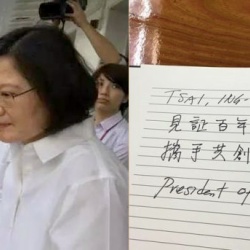 TSAI, ING-
見証百年
攜手共創
President of